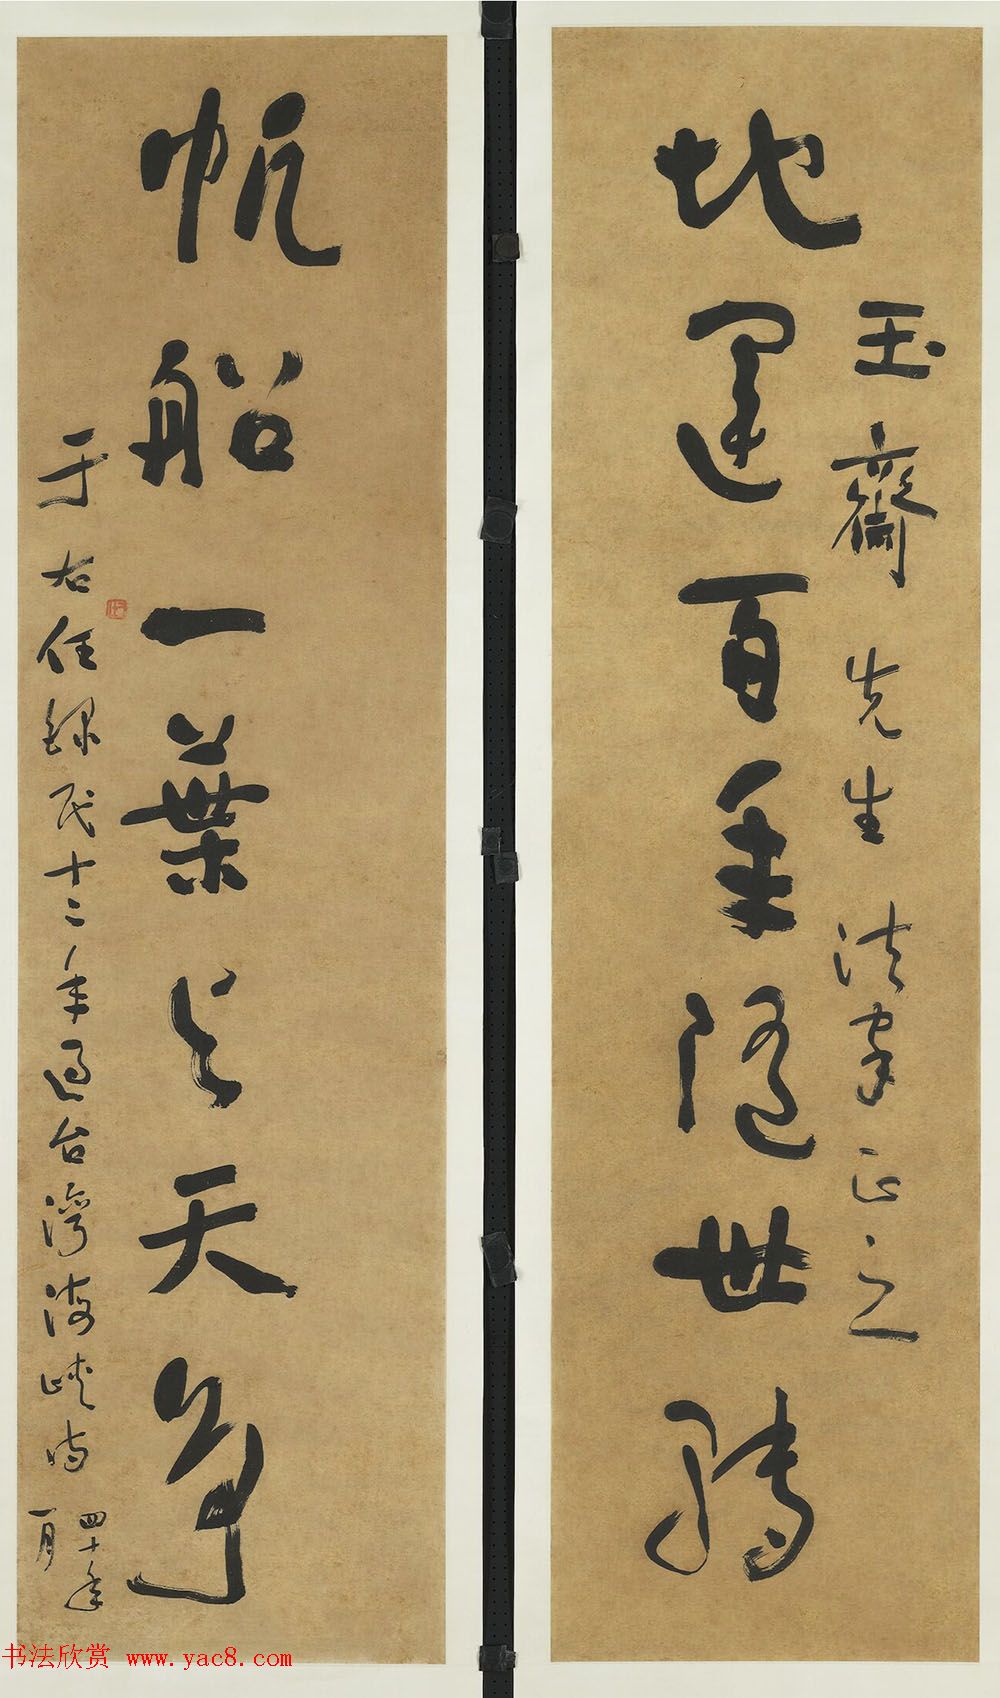 玉齋先生法家正之
地運百年隨世轉
帆船一葉與天爭
于右任錄民十二年過台灣海峽詩
四十年
一月
书法欣赏 www.yac8.com